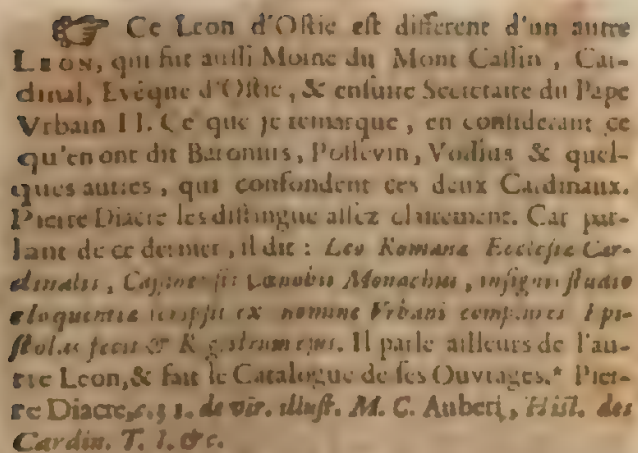 ☞ Ce Leon d'Ostie est different d'un autre
LEON, qui fut aussi Moine du Mont Cassin, Car-
dinal, Evêque d'Ostie, & ensuite Secretaire du Pape
Vrbain II. Ce que je remarque, en considerant ce
qu'en ont dit Baronius, Possevin, Vossius & quel-
ques autres, qui confondent ces deux Cardinaux.
Pierre Diacre les distingue assez clairement. Car par-
lant de ce dernier, il dit : Leo Romanæ Ecclesiæ Car-
dinalis, Cassinensis Cœnobii Monachus, insignis studio
eloquentiæ scripsit ex nomine Vrbani complures Epi-
stolas fecit & Registrum ejus. Il parle ailleurs de l'au-
tre Leon, & fait le Catalogue de ses Ouvrages.* Pier-
re Diacre, c. 31. de vir. illust. M. C. Auberi, Hist. des
Cardin. T. I. &c.